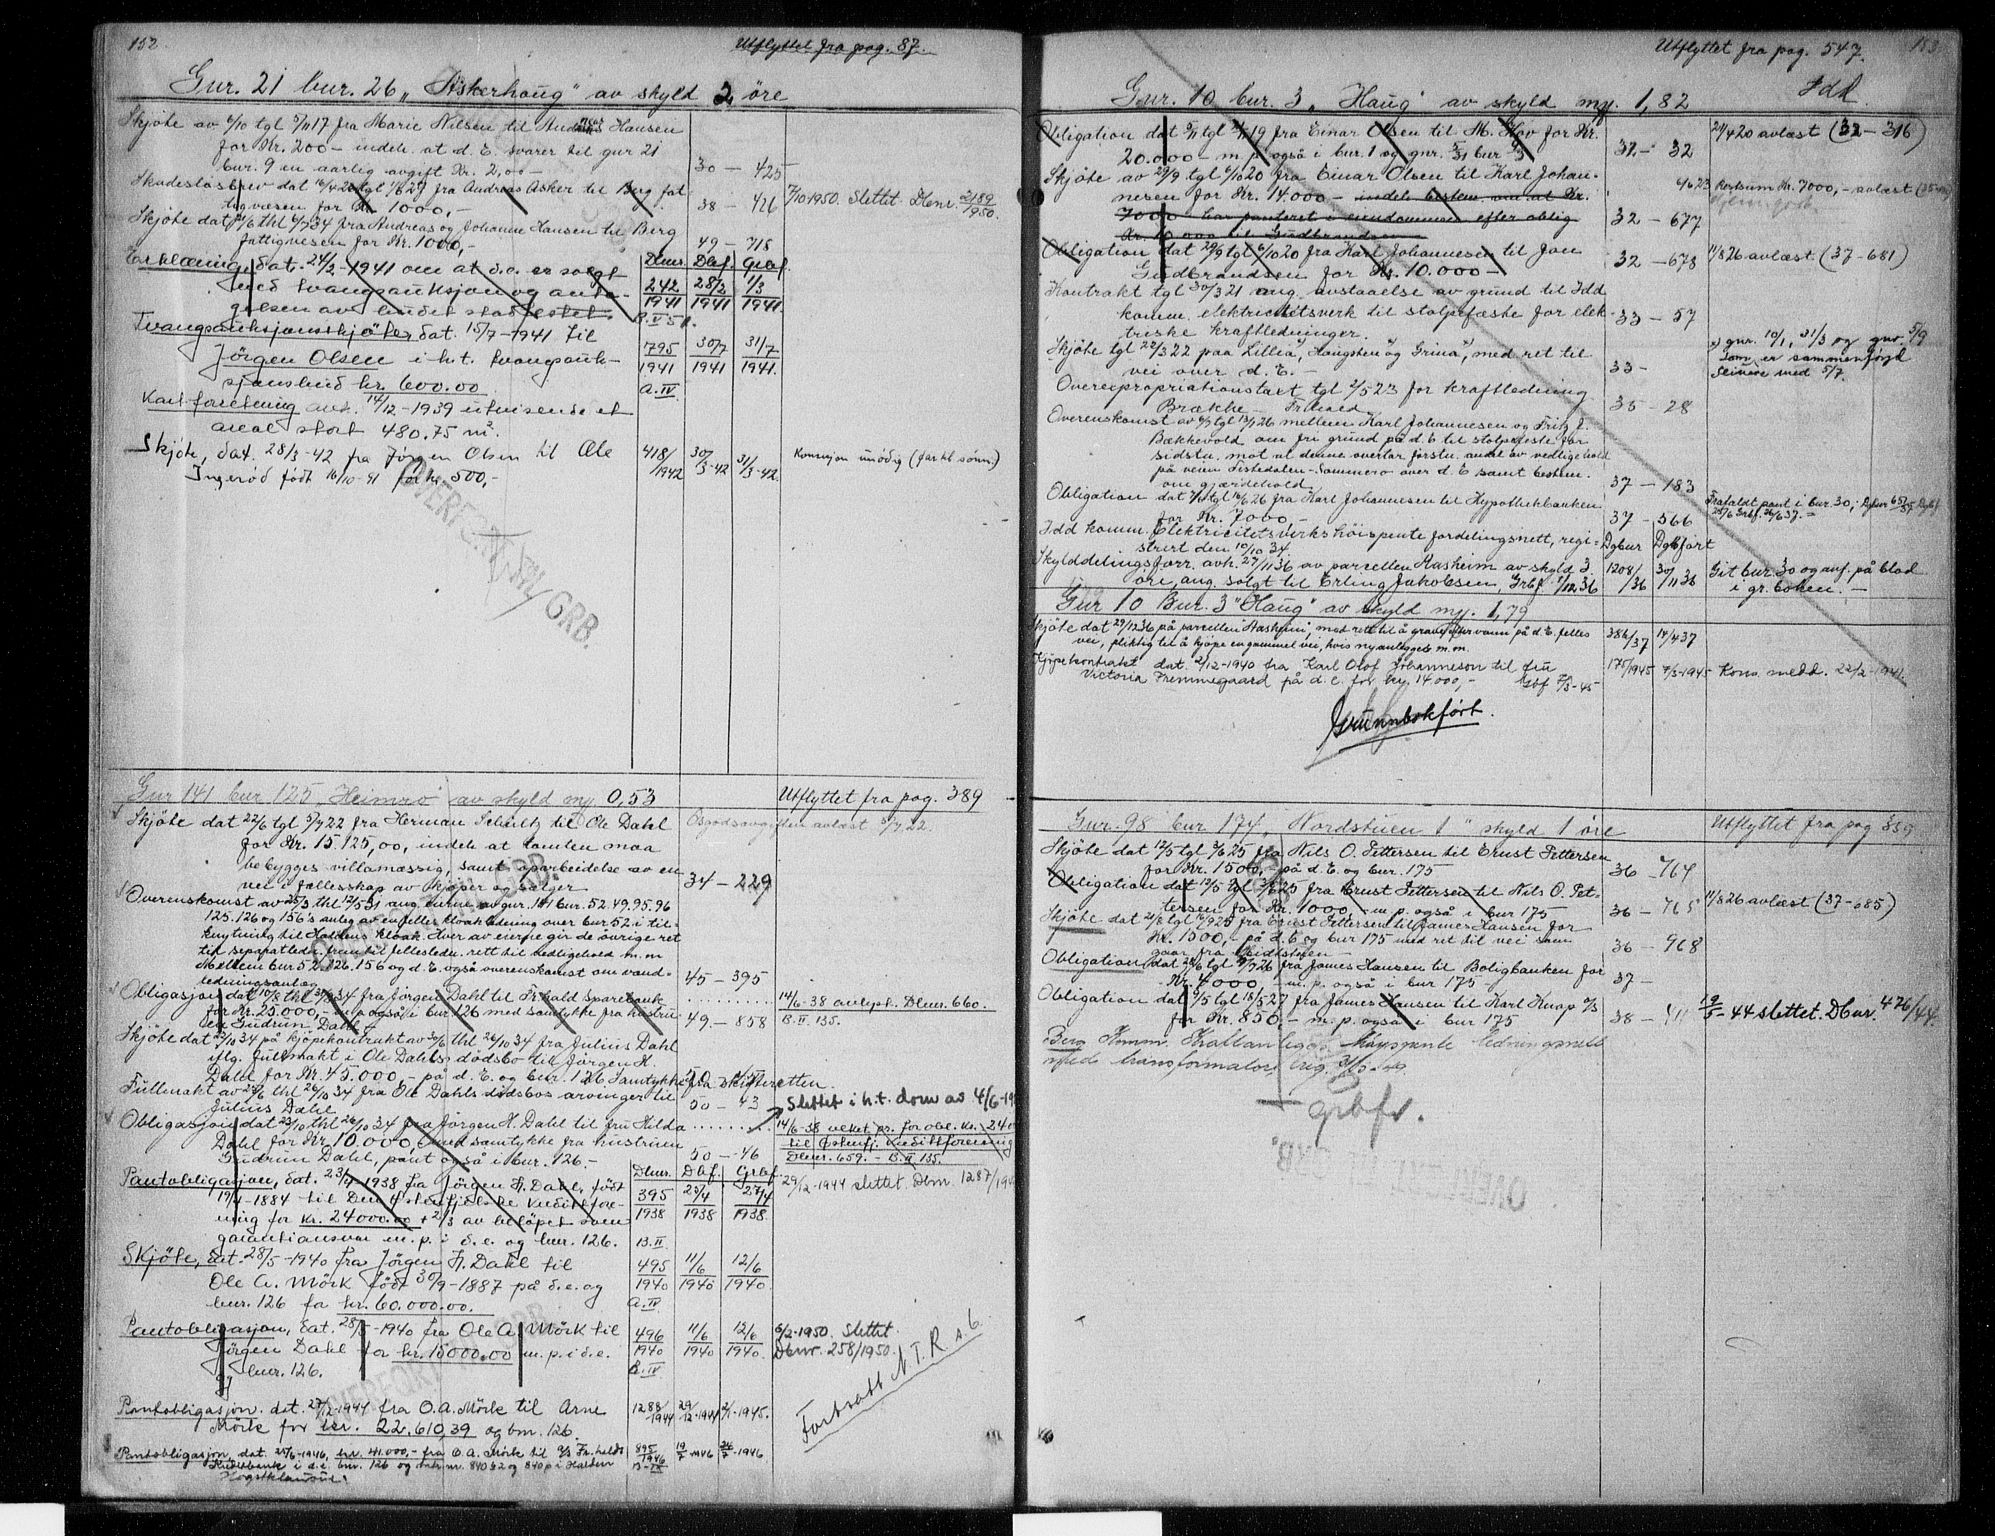 152.
Utflyttet fra pag. 87.
Gnr. 21 bnr. 26 „Askerhaug" av skyld 2 øre
Skjøte av 6/10 tgl 5/11 17 fra Marie Nilsen til Andreas Hansen
for Kr. 200 - indeh. at d. E. svarer til gnr 21
bnr. 9 en aarlig avgift Kr. 2,00 - 30 - 425
Skadesløsbrev dat tgl fra Andreas Asker til Berg fat
tigvesen for Kr. 1000,- 38 - 426 7/10-1950. Slettet. Dbnr. 2189/1950.
Skjøte dat thl fra Andreas og Johanne Hansen til Berg
fattigvesen for Kr. 1000,- 49 - 718
Erklæring, dat. 24/2-1941 om at d.e. er solgt Dbnr. Dbf. Grbf.
ved tvangsauksjon og anta- 242/1941 28/2 1941 1/3 1941.
gelsen av budet stadfestet. B. II 51.
Tvangsauksjonsskjøte, dat. 15/7-1941 til
Jörgen Olsen i h.t. tvangsauk- 795/1941 30/7 1941 31/7 1941.
sjonsbud kr. 600.00 A. IV
Kartforretning avh. 14/12-1939 utvisende et
areal stort 480.75 m².
Skjøte, dat. 28/3-42 fra Jørgen Olsen til Ole 418/1942 30/3-42 31/3-42 Konsesjon unödig (far til sönn.)
Ingerød født 16/10-91 for kr. 500,-
OVERFØRT NY GRB.
Gnr 141 bnr 125 „Heimro" av skyld my. 0,53 Utflyttet fra pag. 389
Skjøte dat 22/6 tgl 5/7 22 fra Herman Schultz til Ole Dahl
for Kr. 15.125,00, indeh. at tomten maa
bebygges villamæssig, samt oparbeidelse av en
vei i fællesskap av kjøper og sælger 34 - 229
Overenskomst av 25/3 thl 12/5 31 ang. eierne av gnr. 141 bnr. 52.49.95.96
125.126 og 156's anleg av en felles kloakledning over bnr. 52 i til-
knytning til Haldens kloak. Hver av eierne gir de övrige ret
til separatledn. frem til fellesledn. rett til vedligehold m.m
Mellem bnr 52.126.156 og d. E. også overenskomst om vand-
ledningsanlæg 45 - 395
Obligasjon dat 10/8 thl 31/8 34 fra Jörgen Dahl til Fr.hald Sparebank 14/6-38 avlyst. Dbnr. 660.
for Kr. 25.000,- også i bnr. 126 med samtykke fra hustru 49 - 858 B. II. 135.
Gudrun Dahl -
Skjøte dat 22/10 34 på kjöpekontrakt av 30/6 thl 26/10 34 fra Julius Dahl
iflg. fullmakt i Ole Dahls dödsbo til Jörgen H.
Dahl for Kr. 45.000,- på d. E. og bnr. 126 Samtykke fra skifteretten.
Fullmakt av thl 26/10 34 fra Ole Dahls dödsbos arvinger til
Julius Dahl 50 - 43 Slettet i h.t. dom av 4/6-19
Obligasjon dat 23/10 thl 26/10 34 fra Jörgen H. Dahl til fru Hilda 14/6-38 veket pr. for obl. kr. 2400
Dahl for Kr. 10.000, med samtykke fra hustruen til Østenfj. Kreditforening
Gudrun Dahl, pant også i bnr. 126.- 50 - 46 Dbnr. 659. - B. II 135.
Pantobligasjon, dat. 23/4-1938 fra Jörgen H. Dahl, född Dbnr. Dbf. Grbf. 29/12-1944 slettet. Dbnr. 1287/194
19/1-1884 til Den Østenfjelske Kreditfore- 395/1938 25/4 1938 27/4 1938.
ning for kr. 24000.00 + 2/3 av belöpet som
garantiansvar m.p. i d.e. og bnr. 126. B. II
Skjöte, dat. 28/5-1940 fra Jörgen H. Dahl til 495/1940 11/6 1940 12/6 1940.
Ole A. Mörk född 30/9-1887 på d.e. og
bnr. 126 fo kr. 60.000.00. A. IV
Pantobligasjon, dat. 28/5-1940 fra Ole A. Mörk til 496/1940 11/6 1940 12/6 1940. 6/2-1950. Slettet.
Jörgen Dahl for kr. 15000.00 m.p. i d.e. Dbnr. 258/1950.
og bnr. 126. B. IV
Fortsatt N.T.R. s. 6.
Pantobligasjon. dat. 27/12-1944 fra O.A. Mörk til Arne 1288/1944 29/12-1944 2/1-1945.
Mörk for kr. 22.610,39 og bnr. 126.
Pantobligasjon, dat. 1946, kr. 41.000,- fra O.A. Mörk til a/s Fr.halds 895/1946 19/7 1946 1946
Kreditbank i d.e. bnr. 126 og 840 b2 og 840 p i Halden
Høgstklausul.
Utflyttet fra pag. 547. 153
Gnr. 10 bnr. 3 „Haug" av skyld my. 1,82 Idd.
Obligation dat tgl 19 fra Einar Olsen til M. Hov for Kr. 20/4 20 avlæst (32 - 316)
20.000 - m.p. også i bnr. 1 og gnr. 31 bnr 3 32 - 32
Skjøte av 29/9 tgl 6/10 20 fra Einar Olsen til Karl Johan-
nesen for Kr. 14.000 - indeh. bestem. om at Kr.
7000 har panteret i eiendommen efter oblig 32 - 677
Kr. 10 000 til Gudbrandsen
Obligation dat 29/9 tgl 6/10 20 fra Karl Johannesen til Jon 11/8 26 avlæst (37 - 681)
Gudbrandsen for Kr. 10.000 - 32 - 678
Kontrakt tgl 30/3 21 ang. avstaaelse av grund til Idd
komm. elektricitetsverk til stolpefæste for elek- 33 - 57
triske kraftledninger.
Skjøte tgl 22/3 22 paa „Lillia", „Haugsten" og „Grina", med ret til gnr. 10/1, 31/3 og gnr. 5/9
vei over d. E. - 33 - som er sammenføyd
senere med 5/7.
Overexpropriationstakt tgl 2/5 23 for kraftledning
Brække - Fr.hald 35 - 28
Overenskomst av tgl 26 mellem Karl Johannesen og Fritz E.
Bækkevold om fri grund på d. E til stolpefeste for
sidstn. mot at denne overtar førstn. andel av vedligehold
på veien Tistedalen - Sommero over d. E samt bestem.
om gjærdehold. 37 - 183
Obligation dat tgl 26 fra Karl Johannesen til Hypothekbanken Frafaldt pant i bnr. 30,
for Kr. 7000,- 37 - 566
Idd komm. Elektricitetsverks høispente fordelingsnett, regi- Dgbnr Dgbført
strert den 10/10 34.
Skylddelingsforr. avh. 27/11 36 av parcellen Aasheim av skyld 3 1208/36 30/11 36 Git bnr. 30 og anf. på blad
øre, ang. solgt til Erling Jakobsen, Grbf. 1/12 36 i gr. boken. -
Gnr 10 Bnr. 3 "Haug" av skyld my. 1,79
Skjøte dat 29/12 36 på parcellen Aasheim, med rett til å grave efter vann på d. E. felles 386/37 14/4 37
vei, pliktig til å kjøpe en gammel vei, hvis ny anlegges m.m.
Kjøpekontrakt dat. 2/12-1940 fra Karl Olof Johanneson til fru 175/1945 7/3-1945 Kons. medd. 22/2-1941.
Victoria Fremmegaard på d. e. for kr. 14 000,- Gbf 7/3-45
Grunnbokført.
Gnr. 98 bnr 174 „Nordstuen 1" skyld 1 øre Utflyttet fra pag 339
Skjøte dat 12/5 tgl 3/6 25 fra Nils O. Pettersen til Ernst Pettersen
for Kr. 1500,- på d. E. og bnr. 175 36 - 764
Obligation dat 12/5 tgl 3/6 25 fra Ernst Pettersen til Nils O. Pet- 11/8 26 avlæst (37 - 685)
tersen for Kr. 1000 - m.p. også i bnr 175 36 - 765
Skjøte dat tgl 9 25 fra Ernst Pettersen til James Hansen for
Kr. 1500,- på d. E og bnr 175 med ret til vei som
gaar fra 36 - 968
Obligation dat tgl 26 fra James Hansen til Boligbanken for 37 -
Kr. 4000 - m.p. også i bnr 175 -
Obligation dat 6/5 tgl 18/5 27 fra James Hansen til Karl Knap a/s 19/5-44 slettet. Dbnr. 476/44.
for Kr. 850,- m.p. også i bnr 175 38 -
Berg Komm. Kraftanlegg. Høyspente ledningsnett
med transformator, tnlg. 49
grbf.
OVERFØRT NY GRB.